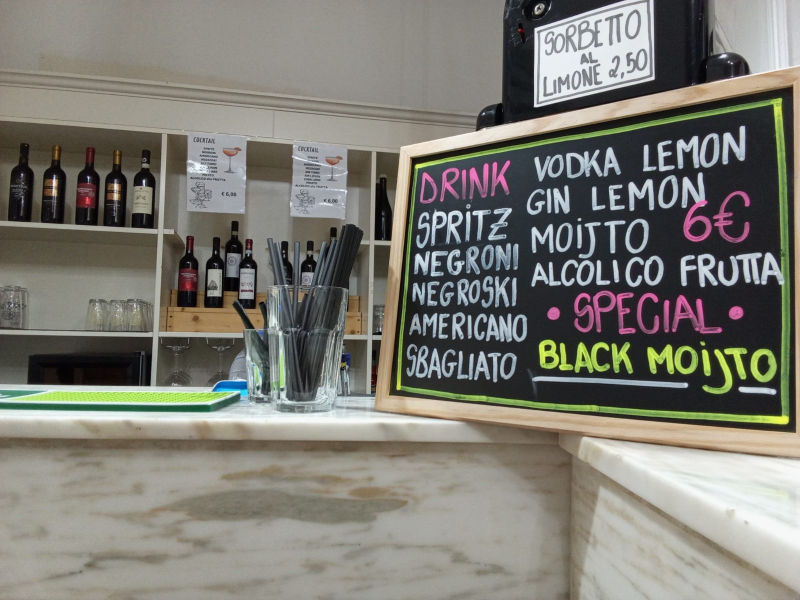 SORBETTO
AL
LIMONE 2,50
DRINK
SPRITZ
NEGRONI
NEGROSKI
AMERICANO
SBAGLIATO
VODKA LEMON
GIN LEMON
MOIJTO 6€
ALCOLICO FRUTTA
• SPECIAL •
BLACK MOIJTO
COCKTAIL
€ 6,00
COCKTAIL
€ 6,00